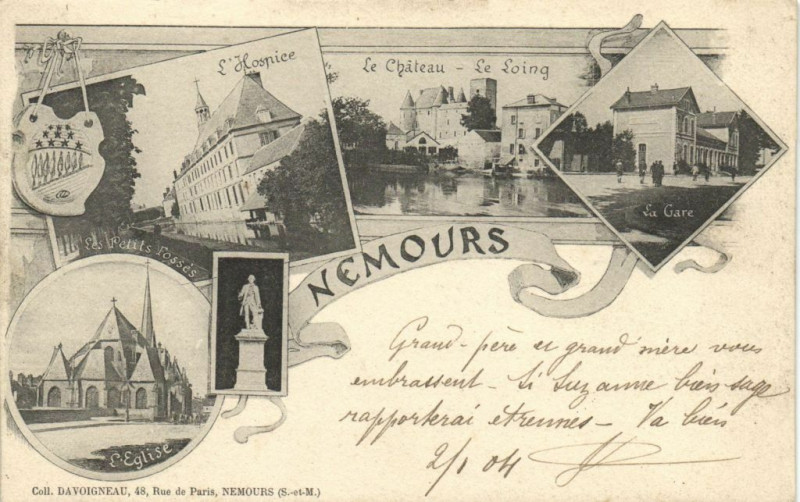 L'Hospice
Le Château - Le Loing
La Gare
Les Petits Fossés
NEMOURS
L'Eglise
Grand-père et grand mère vous
embrassent - Si Suzanne bien sage
rapporterai étrennes - Va bien
2/1 04
Coll. DAVOIGNEAU, 48, Rue de Paris, NEMOURS (S.-et-M.)